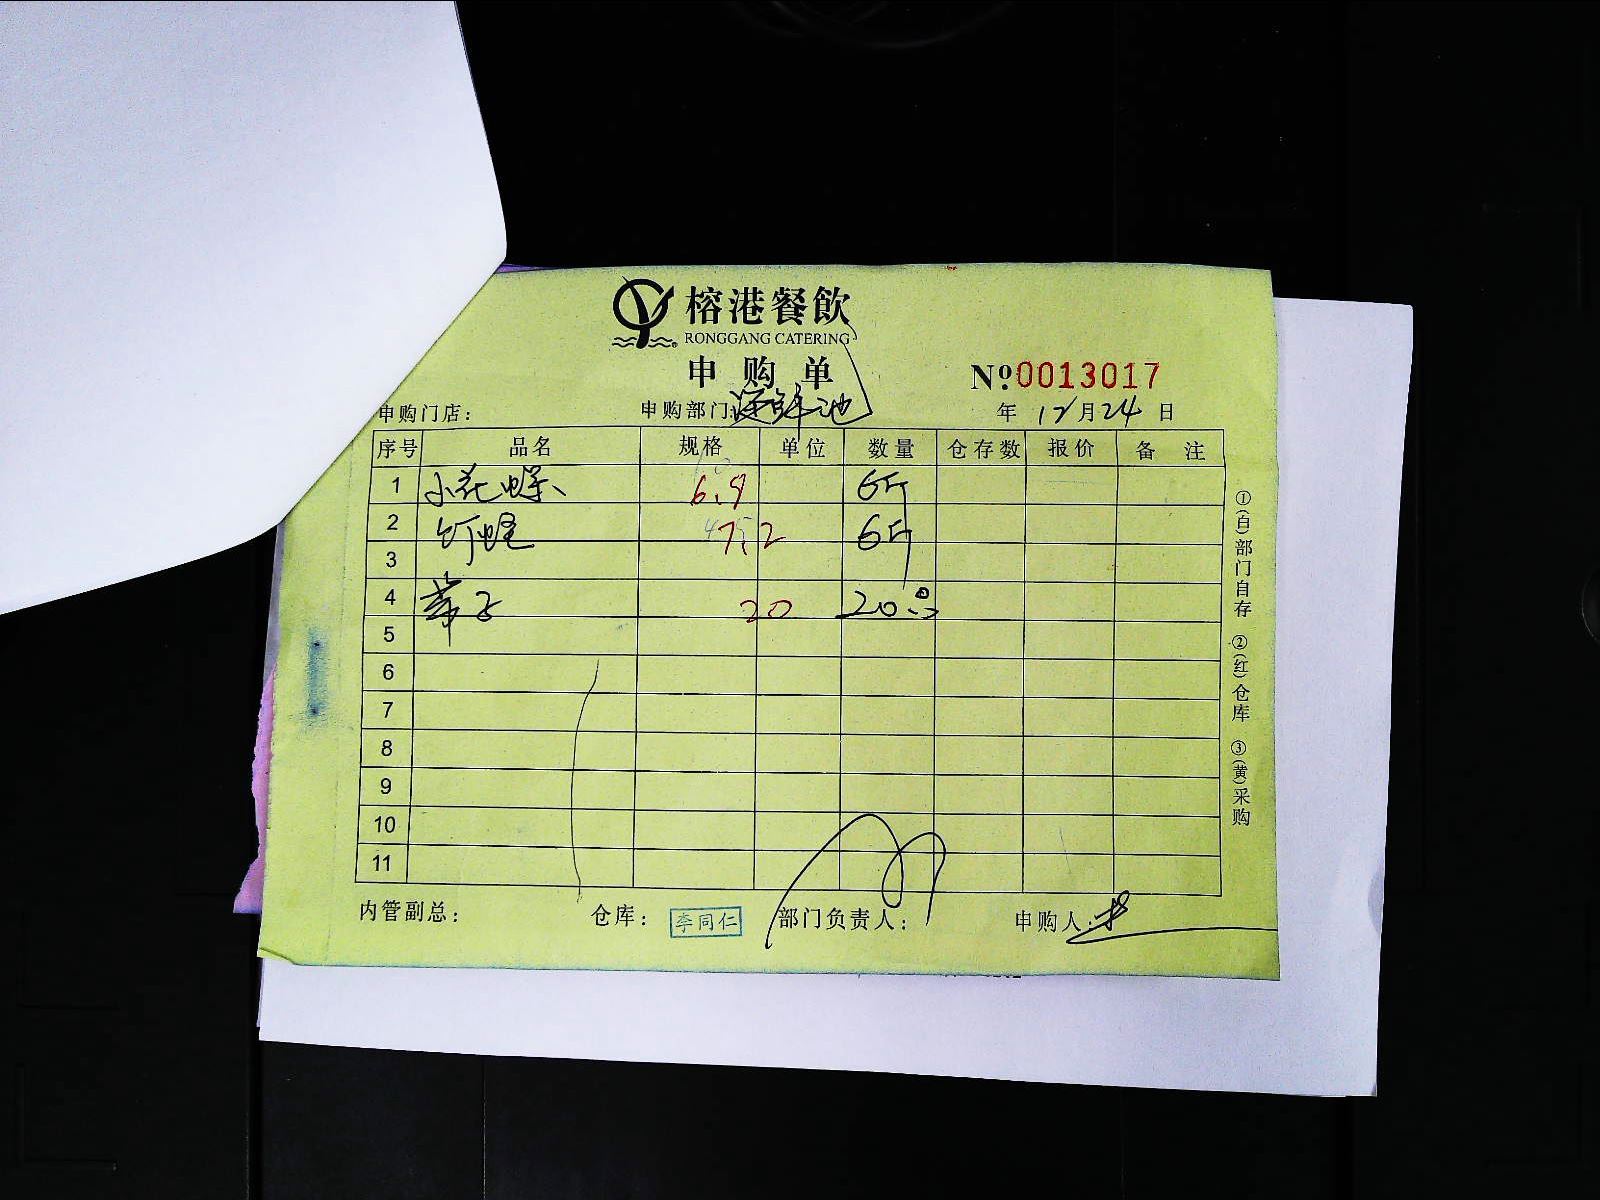 榕港餐飲
RONGGANG CATERING
申购单
№0013017
申购门店： 申购部门：海鲜池 年 12月24日
序号 品名 规格 单位 数量 仓存数 报价 备注
1 小花螺 6.9 6斤
2 钉螺 7.2 6斤
3
4 20 20只
5
6
7
8
9
10
11
内管副总： 仓库：李同仁 部门负责人： 申购人：
①(白)部门自存 ②(红)仓库 ③(黄)采购